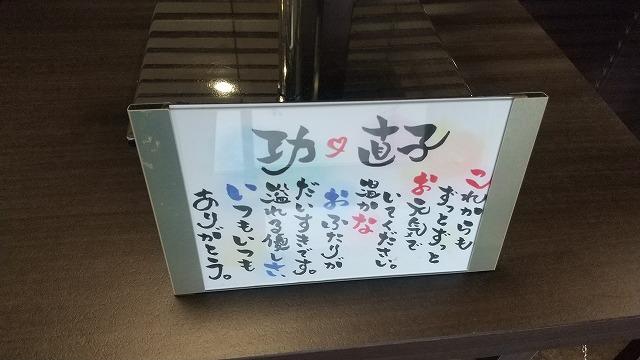 功♡直子
これからも
ずっとずっと
お元気で
いてください。
温かな
おふたりが
だいすきです。
溢れる優しさ、
いつもいつも
ありがとう。